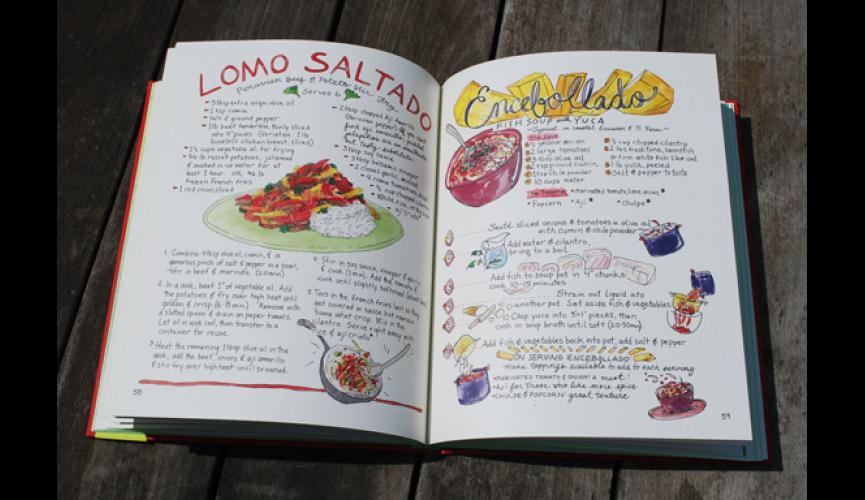 LOMO SALTADO
Peruvian Beef & Potato Stir Fry
Serves 6
5 tbsp extra virgin olive oil
1 tsp cumin
Salt & ground pepper
1 lb beef tenderloin, thinly sliced
into 4" pieces (Variation: 1 lb
boneless chicken breast, sliced)
1½ cups vegetable oil for frying
russet potatoes, julienned
& soaked in ice water for at
least 1 hour OR
frozen french fries
1 red onion, sliced
2 tbsp chopped Aji Amarillo
(Peruvian pepper)
3 tbsp soy sauce
3 tbsp balsamic vinegar
2 cloves garlic, minced
4 roma tomatoes
chopped cilantro
White rice
aji criollo
1. Combine 4 tbsp olive oil, cumin, & a
generous pinch of salt & pepper in a bowl,
stir in beef & marinate (20 min).
2. In a wok, heat 1" of vegetable oil. Add
the potatoes & fry over high heat until
golden & crisp (6-8 min). Remove with
a slotted spoon & drain on paper towels.
Let oil in wok cool, then transfer to a
container for reuse.
3. Heat the remaining 1 tbsp olive oil in the
wok, add the beef, onions & aji amarillo
& stir fry over high heat until browned.
4. Stir in soy sauce, vinegar & garlic
& cook (1 min). Add the tomatoes &
cook until slightly softened
5. Toss in the french fries last so they
get covered in sauce but remain
somewhat crisp. Mix in the
cilantro. Serve right away with
rice & aji criollo
58
Encebollado
FISH SOUP with YUCA
Typical in coastal Ecuador & N. Peru
The Soup
½ yellow onion
2 large tomatoes
3 tbsp olive oil
2 tsp ground cumin
1 tsp chile powder
10 cups water
½ cup chopped cilantro
2 lbs fresh tuna, swordfish
or firm white fish like cod
1 lb yuca, peeled
Salt & pepper to taste
The Toppings • marinated tomato & onion*
• Popcorn • Aji* • Chulpe*
Sauté sliced onions & tomatoes in olive oil
with cumin & chile powder
Add water & cilantro,
bring to a boil
Add fish to soup pot in 4" chunks
cook 10-15 minutes
Strain out liquid into
another pot. Set aside fish & vegetables
Chop yuca into 3x1" pieces, then
cook in soup broth until soft (20-30min)
Add fish & vegetables back into pot, add salt & pepper
ON SERVING ENCEBOLLADO
make toppings available to add to each serving
• MARINATED TOMATO & ONION a must!
• Aji for those who like more spice
• CHULPE & POPCORN great texture
59